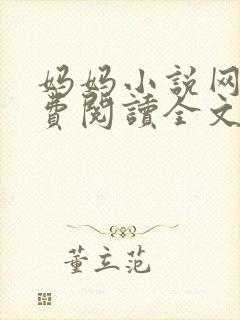 妈妈小说网
費閱讀全文
董立范